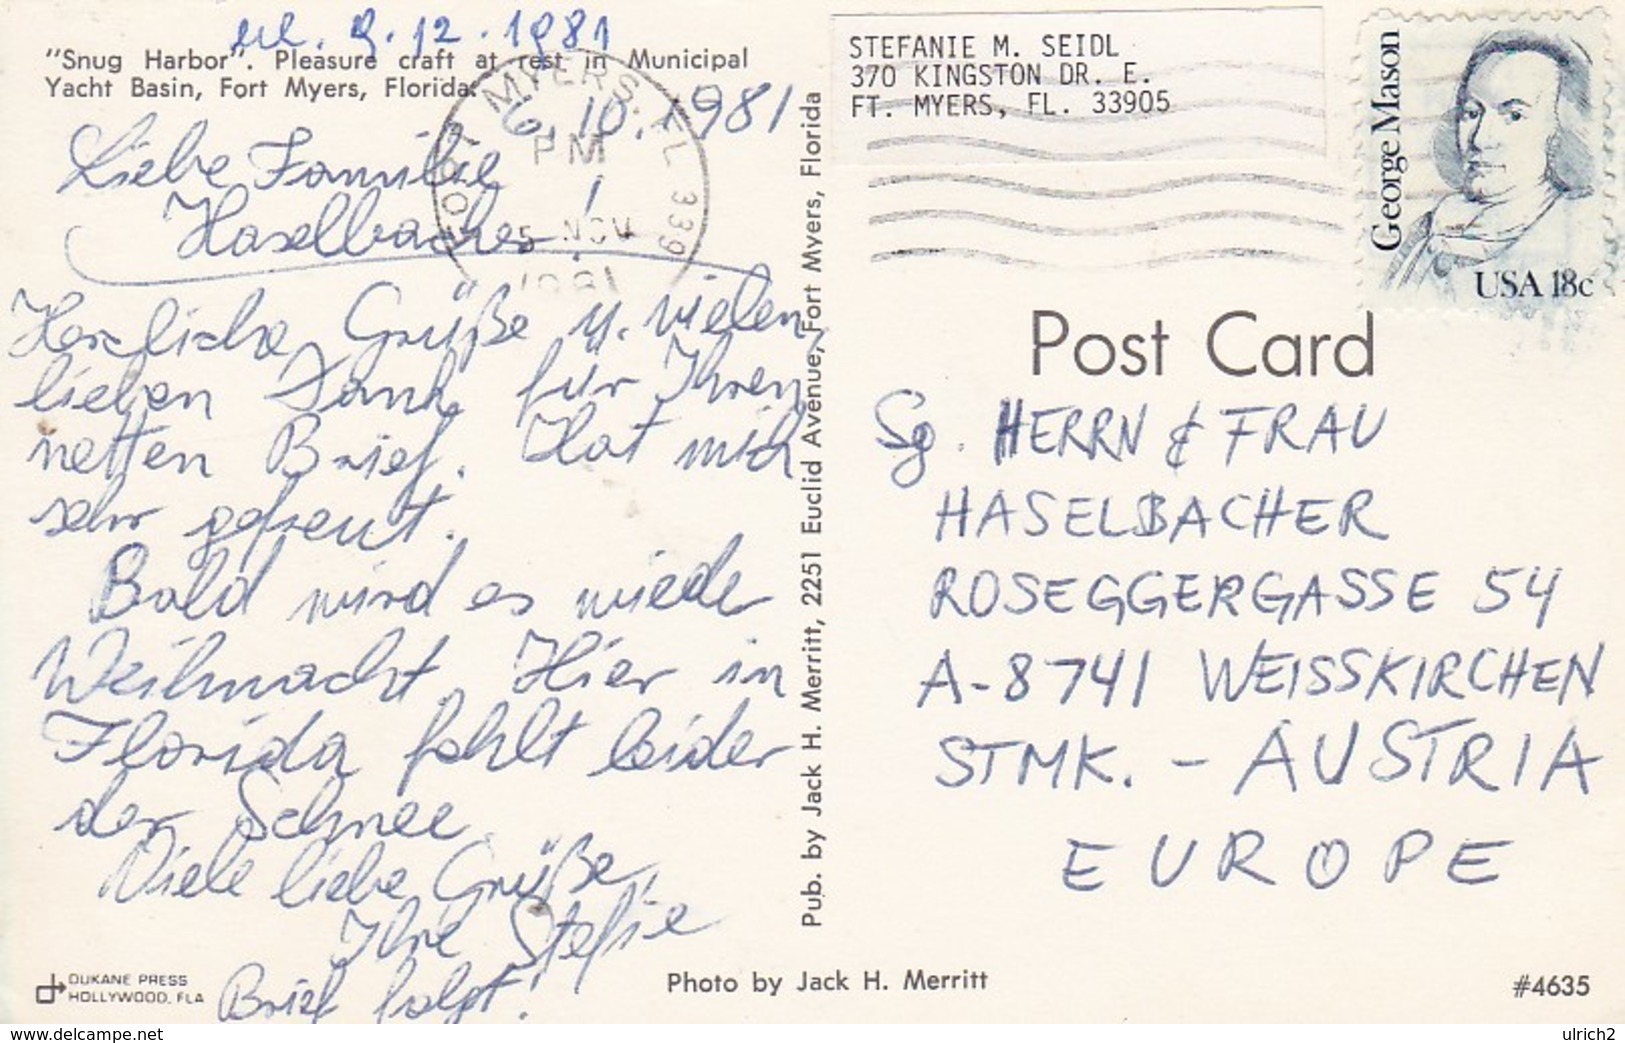 erl. 9.12.1981
"Snug Harbor". Pleasure craft at rest in Municipal
Yacht Basin, Fort Myers, Florida.
6.10.1981
Liebe Familie
Haselbacher!
Herzliche Grüße u. vielen,
lieben Dank für Ihren
netten Brief. Hat mich
sehr gefreut.
Bald wird es wieder
Weihnacht. Hier in
Florida fehlt leider
der Schnee.
Viele liebe Grüße,
Ihre Stefie
Brief folgt!
DUKANE PRESS
HOLLYWOOD, FLA
FORT MYERS, FL 339
PM
5 NOV
1981
Pub. by Jack H. Merritt, 2251 Euclid Avenue, Fort Myers, Florida
STEFANIE M. SEIDL
370 KINGSTON DR. E.
FT. MYERS, FL. 33905
George Mason
USA 18c
Post Card
Sg. HERRN & FRAU
HASELBACHER
ROSEGGERGASSE 54
A-8741 WEISSKIRCHEN
STMK. - AUSTRIA
EUROPE
Photo by Jack H. Merritt
#4635
www.delcampe.net
ulrich2